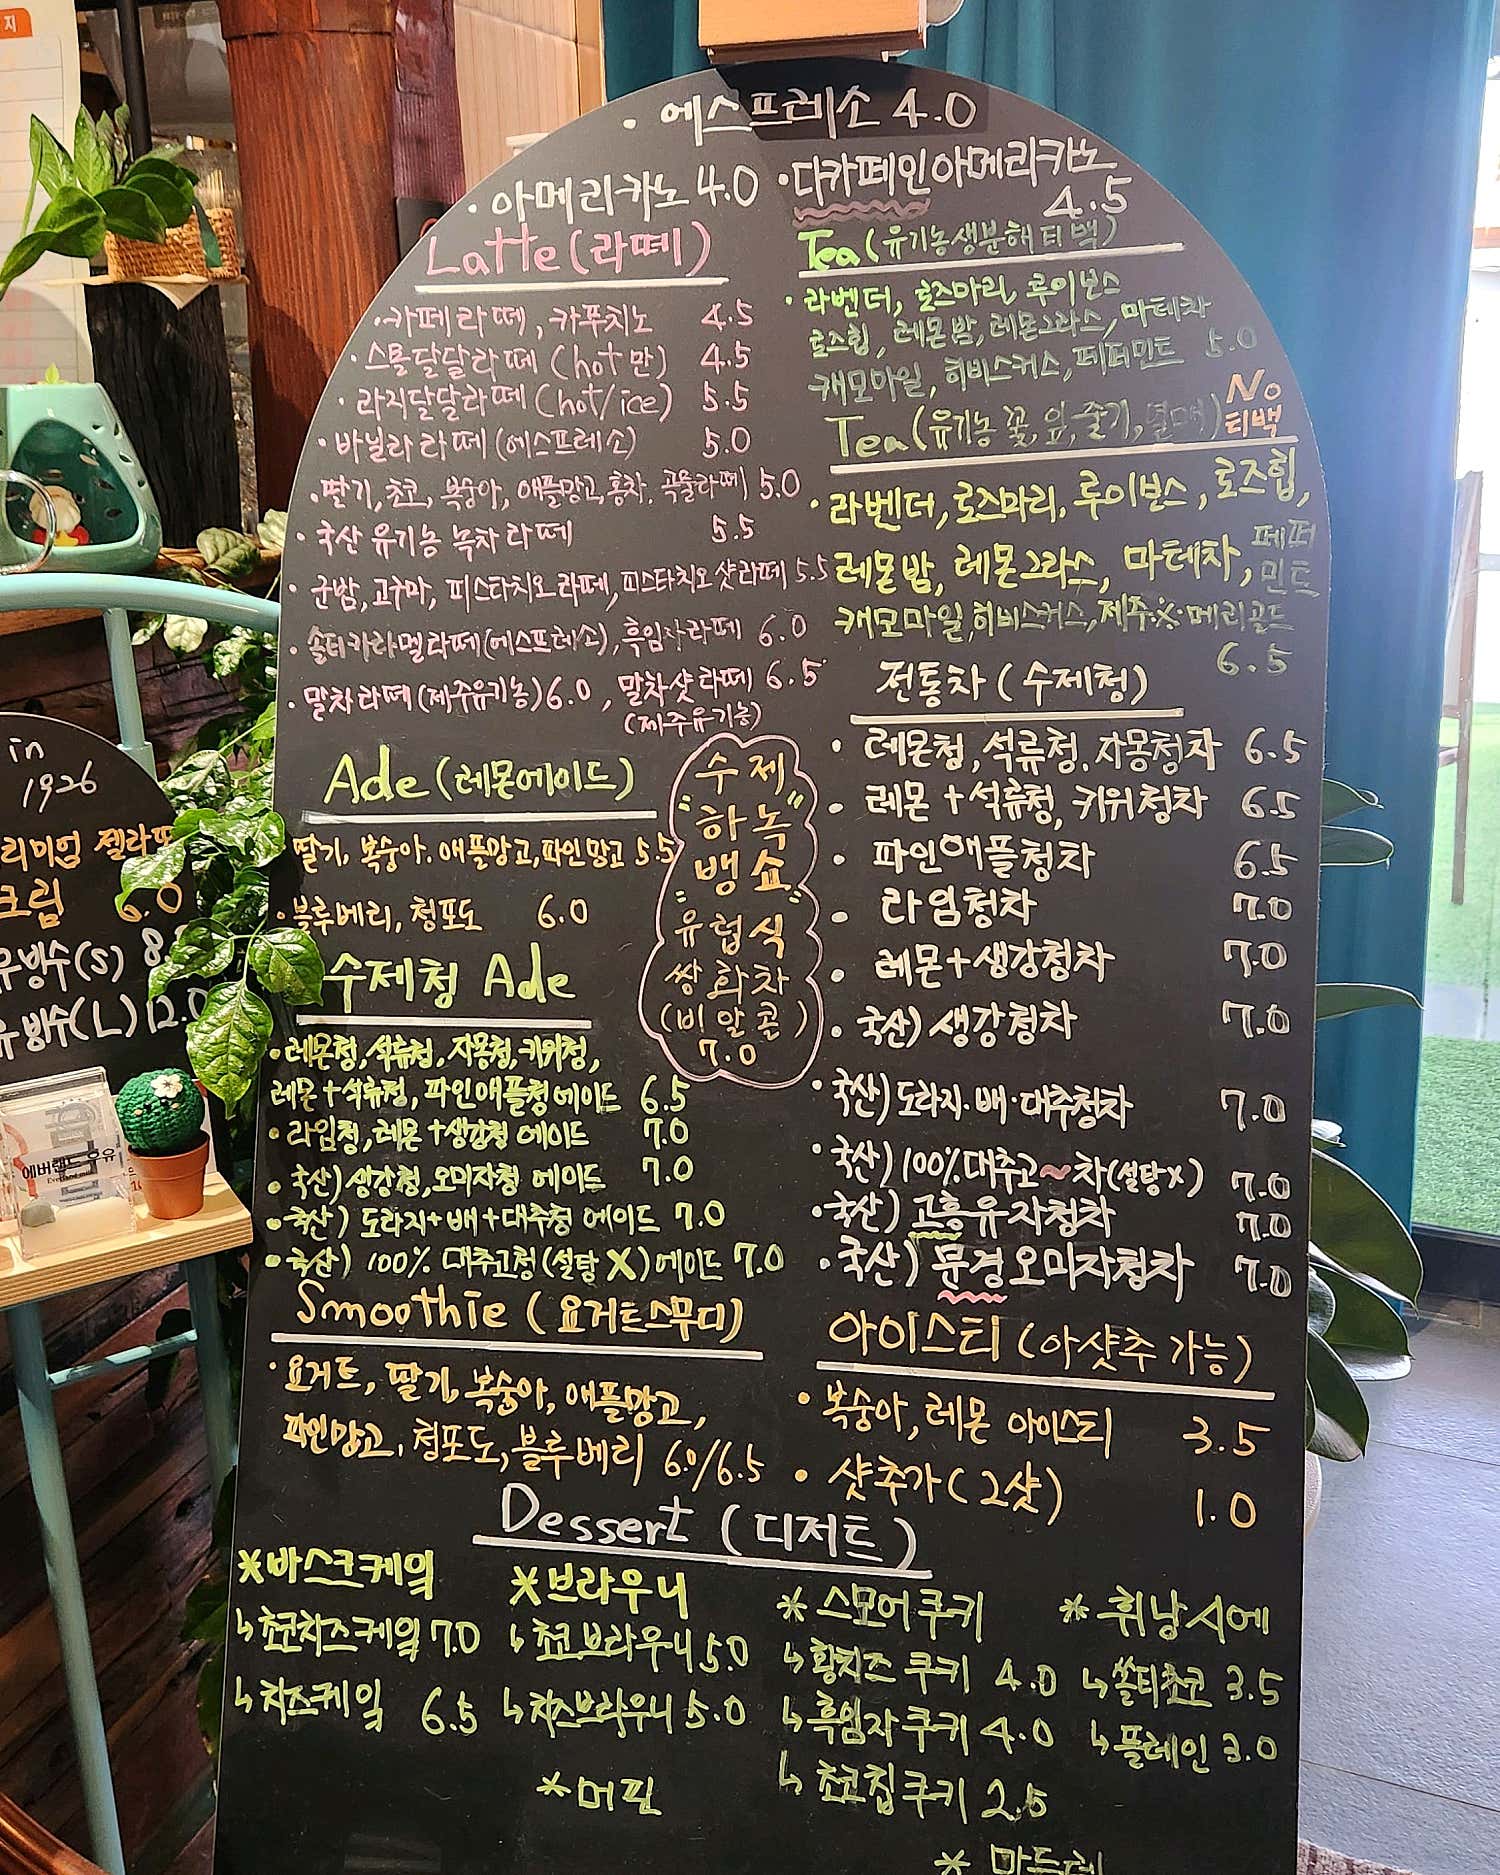 · 에스프레소 4.0
· 아메리카노 4.0
· 디카페인아메리카노
4.5
Latte (라떼)
· 카페라떼, 카푸치노 4.5
· 스몰달달라떼 (hot만) 4.5
· 라지달달라떼 (hot/ice) 5.5
· 바닐라라떼 (에스프레소) 5.0
· 딸기, 초코, 복숭아, 애플망고, 홍차, 곡물라떼 5.0
· 국산 유기농 녹차 라떼 5.5
· 군밤, 고구마, 피스타치오라떼, 피스타치오샷라떼 5.5
· 솔티카라멜라떼(에스프레소), 흑임자라떼 6.0
· 말차라떼 (제주유기농) 6.0, 말차샷라떼 6.5
(제주유기농)
Tea (유기농생분해티백)
· 라벤더, 로즈마리, 루이보스
로즈힙, 레몬밤, 레몬그라스, 마테차
캐모마일, 히비스커스, 페퍼민트 5.0
Tea (유기농 꽃, 잎, 줄기, 열매) No
티백
· 라벤더, 로즈마리, 루이보스, 로즈힙,
레몬밤, 레몬그라스, 마테차, 페퍼
민트
캐모마일, 히비스커스, 제주※·메리골드
6.5
전통차 (수제청)
· 레몬청, 석류청, 자몽청차 6.5
· 레몬+석류청, 키위청차 6.5
· 파인애플청차 6.5
· 라임청차 7.0
· 레몬+생강청차 7.0
· 국산) 생강청차 7.0
· 국산) 도라지·배·대추청차 7.0
· 국산) 100% 대추고~차(설탕X) 7.0
· 국산) 고흥유자청차 7.0
· 국산) 문경오미자청차 7.0
Ade (레몬에이드)
딸기, 복숭아, 애플망고, 파인망고 5.5
· 블루베리, 청포도 6.0
수제
"하녹"
뱅쇼
"유럽식
쌍화차
(비알콜)
7.0
수제청 Ade
· 레몬청, 석류청, 자몽청, 키위청,
레몬+석류청, 파인애플청에이드 6.5
· 라임청, 레몬+생강청 에이드 7.0
· 국산) 생강청, 오미자청 에이드 7.0
· 국산) 도라지+배+대추청 에이드 7.0
· 국산) 100% 대추고청 (설탕X) 에이드 7.0
Smoothie (요거트스무디)
· 요거트, 딸기, 복숭아, 애플망고,
파인망고, 청포도, 블루베리 6.0/6.5
아이스티 (아샷추 가능)
· 복숭아, 레몬 아이스티 3.5
· 샷추가 (2샷) 1.0
Dessert (디저트)
*바스크케잌
↳초코치즈케잌 7.0
↳치즈케잌 6.5
*브라우니
↳초코브라우니 5.0
↳치즈브라우니 5.0
*머핀
* 스모어쿠키
↳황치즈 쿠키 4.0
↳흑임자쿠키 4.0
↳초코칩쿠키 2.5
* 휘낭시에
↳쏠티초코 3.5
↳플레인 3.0
* 마드레
in
1926
리미엄 젤라또
크림 6.0
유빙수(S) 8.
유빙수(L) 12.0
에버랜드 우유
지